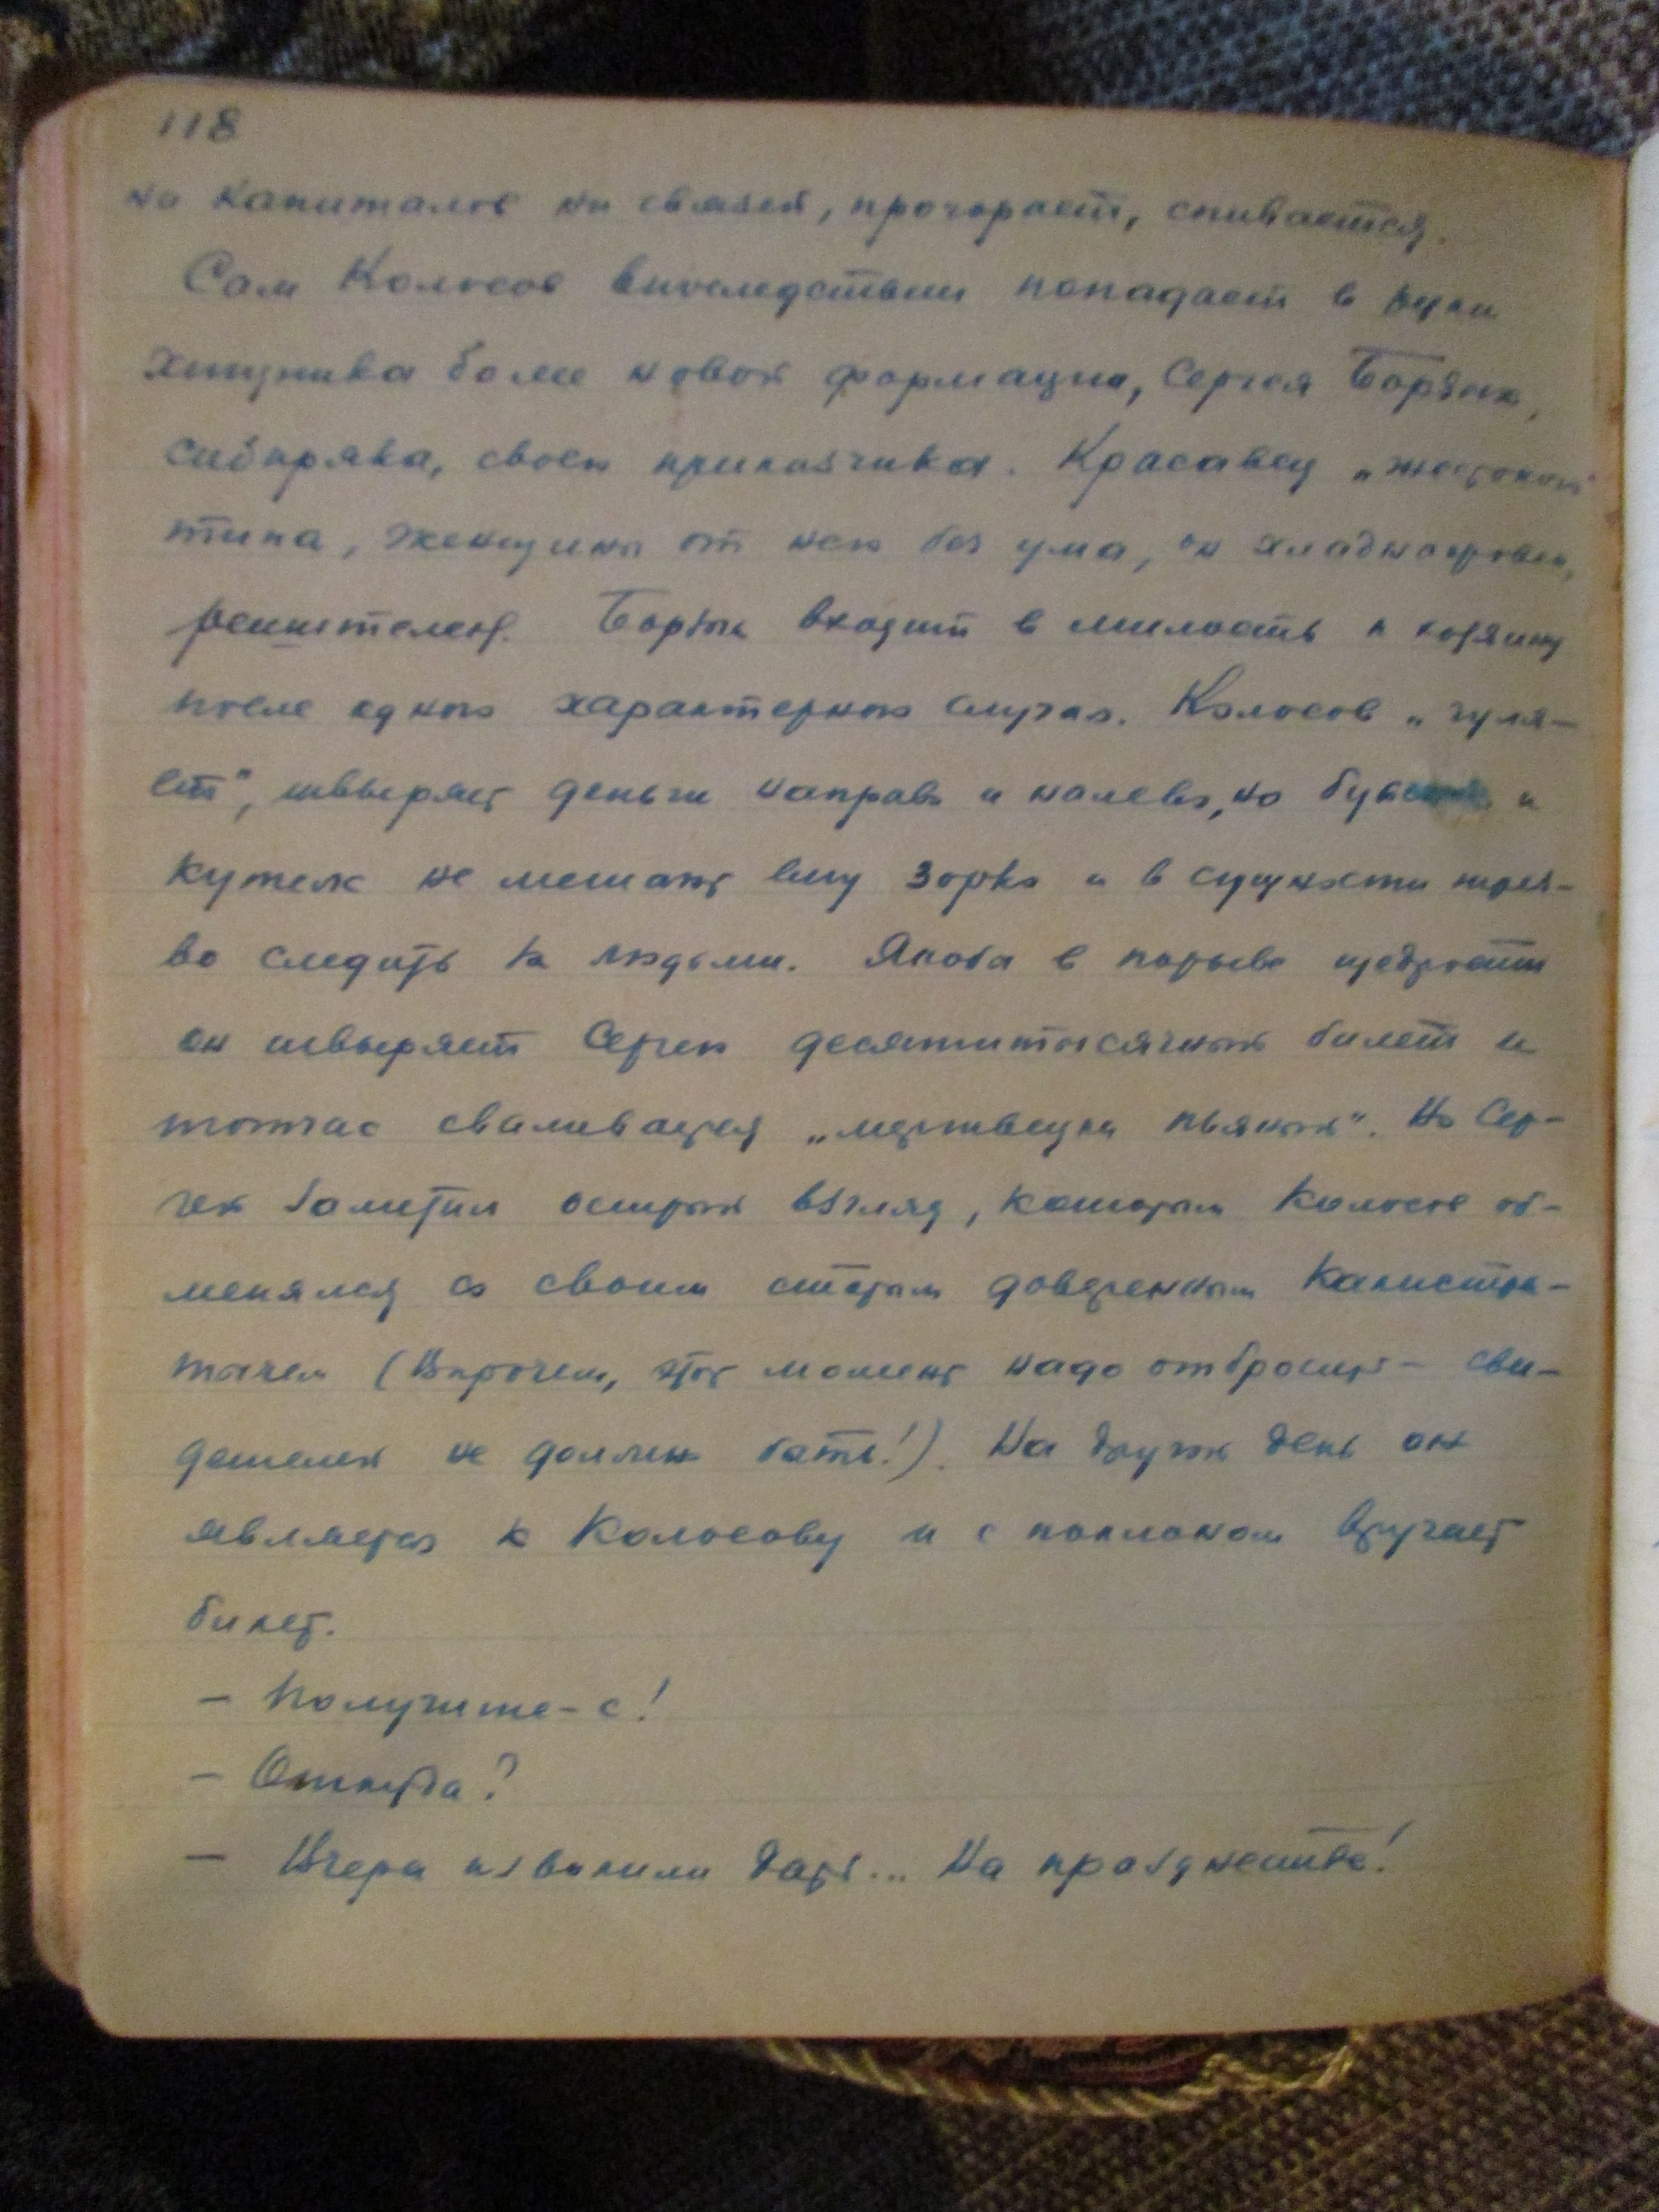 118
ни капиталов ни связей, прогорает, спивается.
Сам Колосов впоследствии попадает в руки
хищника более новой формации, Сергея Борзых,
сибиряка, своего приказчика. Красавец „жестокого"
типа, женщины от него без ума, он хладнокровен,
решителен. Борзых входит в милость к хозяину
после одного характерного случая. Колосов „гуля-
ет", швыряет деньги направо и налево, но и
кутеж не мешают ему зорко и в сущности трез-
во следить за людьми. Якобы в порыве щедрости
он швыряет Сергею десятитысячный билет и
тотчас сваливается „мертвецки пьяный". Но Сер-
гей заметил острый взгляд, которым Колосов об-
менялся со своим старым доверенным Калистра-
тычем (Впрочем, этот момент надо отбросить – сви-
детелей не должно быть!). На другой день он
является к Колосову и с поклоном вручает
билет.
– Получите-с!
– Откуда?
– Вчера изволили дать... На празднестве!